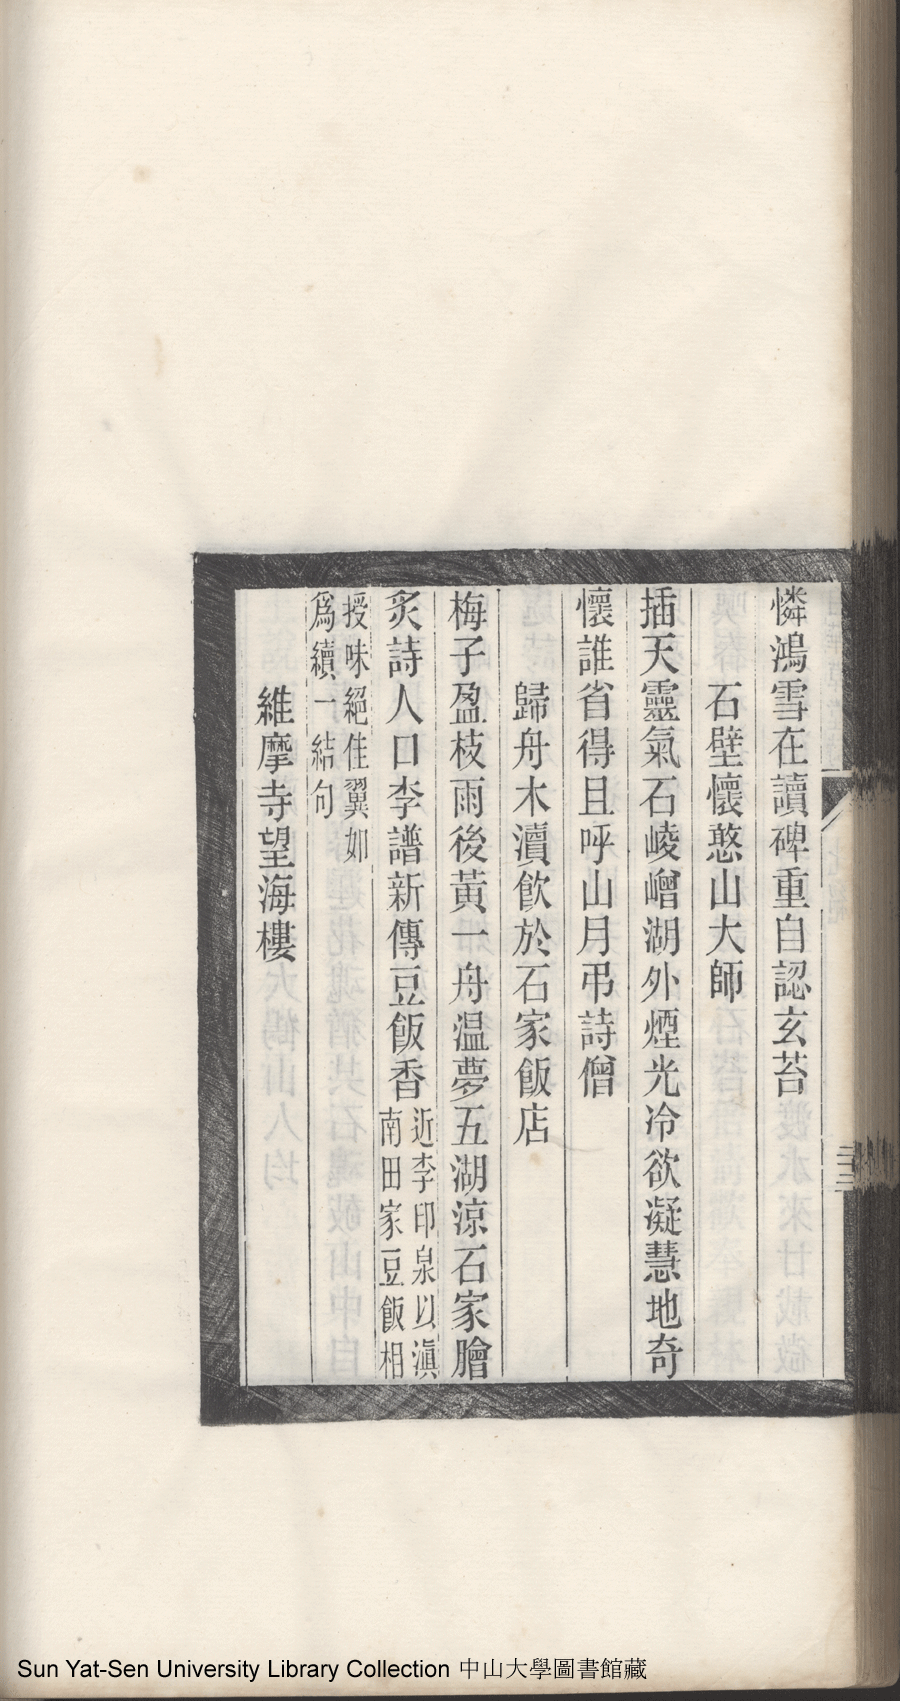 憐鴻雪在讀碑重自認玄苔
石壁懷憨山大師
插天靈氣石崚嶒湖外煙光冷欲凝慧地奇
懷誰省得且呼山月弔詩僧
歸舟木瀆飲於石家飯店
梅子盈枝雨後黃一舟温夢五湖涼石家膾
炙詩人口李譜新傳豆飯香近李印泉以滇
南田家豆飯相
授味絕佳翼如
爲續一結句
維摩寺望海樓
Sun Yat-Sen University Library Collection 中山大學圖書館藏